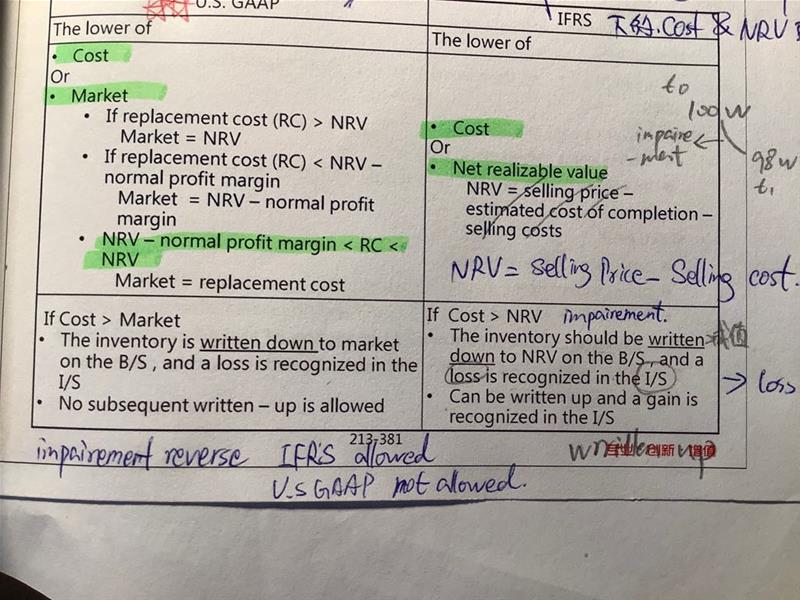 U.S. GAAP
IFRS
下的.Cost & NRV
The lower of
• Cost
Or
• Market
• If replacement cost (RC) > NRV
Market = NRV
• If replacement cost (RC) < NRV –
normal profit margin
Market = NRV – normal profit
margin
• NRV – normal profit margin < RC <
NRV
Market = replacement cost
The lower of
• Cost
Or
• Net realizable value
NRV = selling price –
estimated cost of completion –
selling costs
NRV = Selling Price – Selling cost.
t0
100W
impaire
-ment
98W
t1
If Cost > Market
• The inventory is written down to market
on the B/S , and a loss is recognized in the
I/S
• No subsequent written – up is allowed
If Cost > NRV impairement.
• The inventory should be written
down to NRV on the B/S , and a
loss is recognized in the I/S
→ loss
• Can be written up and a gain is
recognized in the I/S
213-381
impairement reverse IFRS allowed
U.S GAAP not allowed.
written up
专业 创新 增值